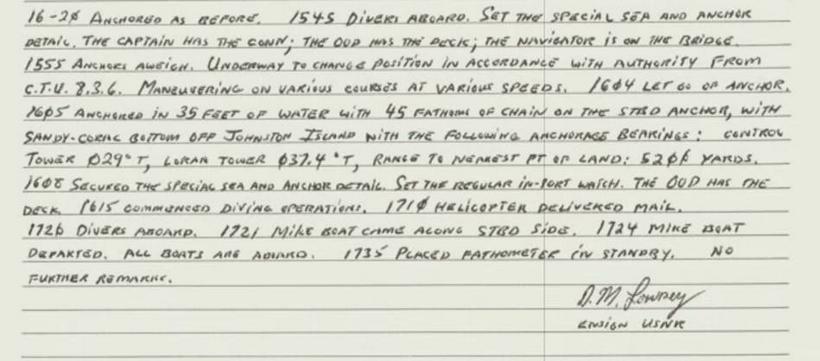 16-20 ANCHORED AS BEFORE. 1545 DIVERS ABOARD. SET THE SPECIAL SEA AND ANCHOR
DETAIL. THE CAPTAIN HAS THE CONN; THE OOD HAS THE DECK; THE NAVIGATOR IS ON THE BRIDGE.
1555 ANCHORS AWEIGH. UNDERWAY TO CHANGE POSITION IN ACCORDANCE WITH AUTHORITY FROM
C.T.U. 8.3.6. MANEUVERING ON VARIOUS COURSES AT VARIOUS SPEEDS. 1604 LET GO OF ANCHOR.
1605 ANCHORED IN 35 FEET OF WATER WITH 45 FATHOMS OF CHAIN ON THE STBD ANCHOR, WITH
SANDY-CORAL BOTTOM OFF JOHNSTON ISLAND WITH THE FOLLOWING ANCHORAGE BEARINGS: CONTROL
TOWER Ø29°T, LORAN TOWER Ø37.4°T, RANGE TO NEAREST PT OF LAND: 52ØØ YARDS.
1608 SECURED THE SPECIAL SEA AND ANCHOR DETAIL. SET THE REGULAR IN-PORT WATCH. THE OOD HAS THE
DECK. 1615 COMMENCED DIVING OPERATIONS. 171Ø HELICOPTER DELIVERED MAIL.
172Ø DIVERS ABOARD. 1721 MIKE BOAT CAME ALONG STBD SIDE. 1724 MIKE BOAT
DEPARTED. ALL BOATS ARE ABOARD. 1735 PLACED FATHOMETER IN STANDBY. NO
FURTHER REMARKS.
D.M. Lowney
ENSIGN USNR